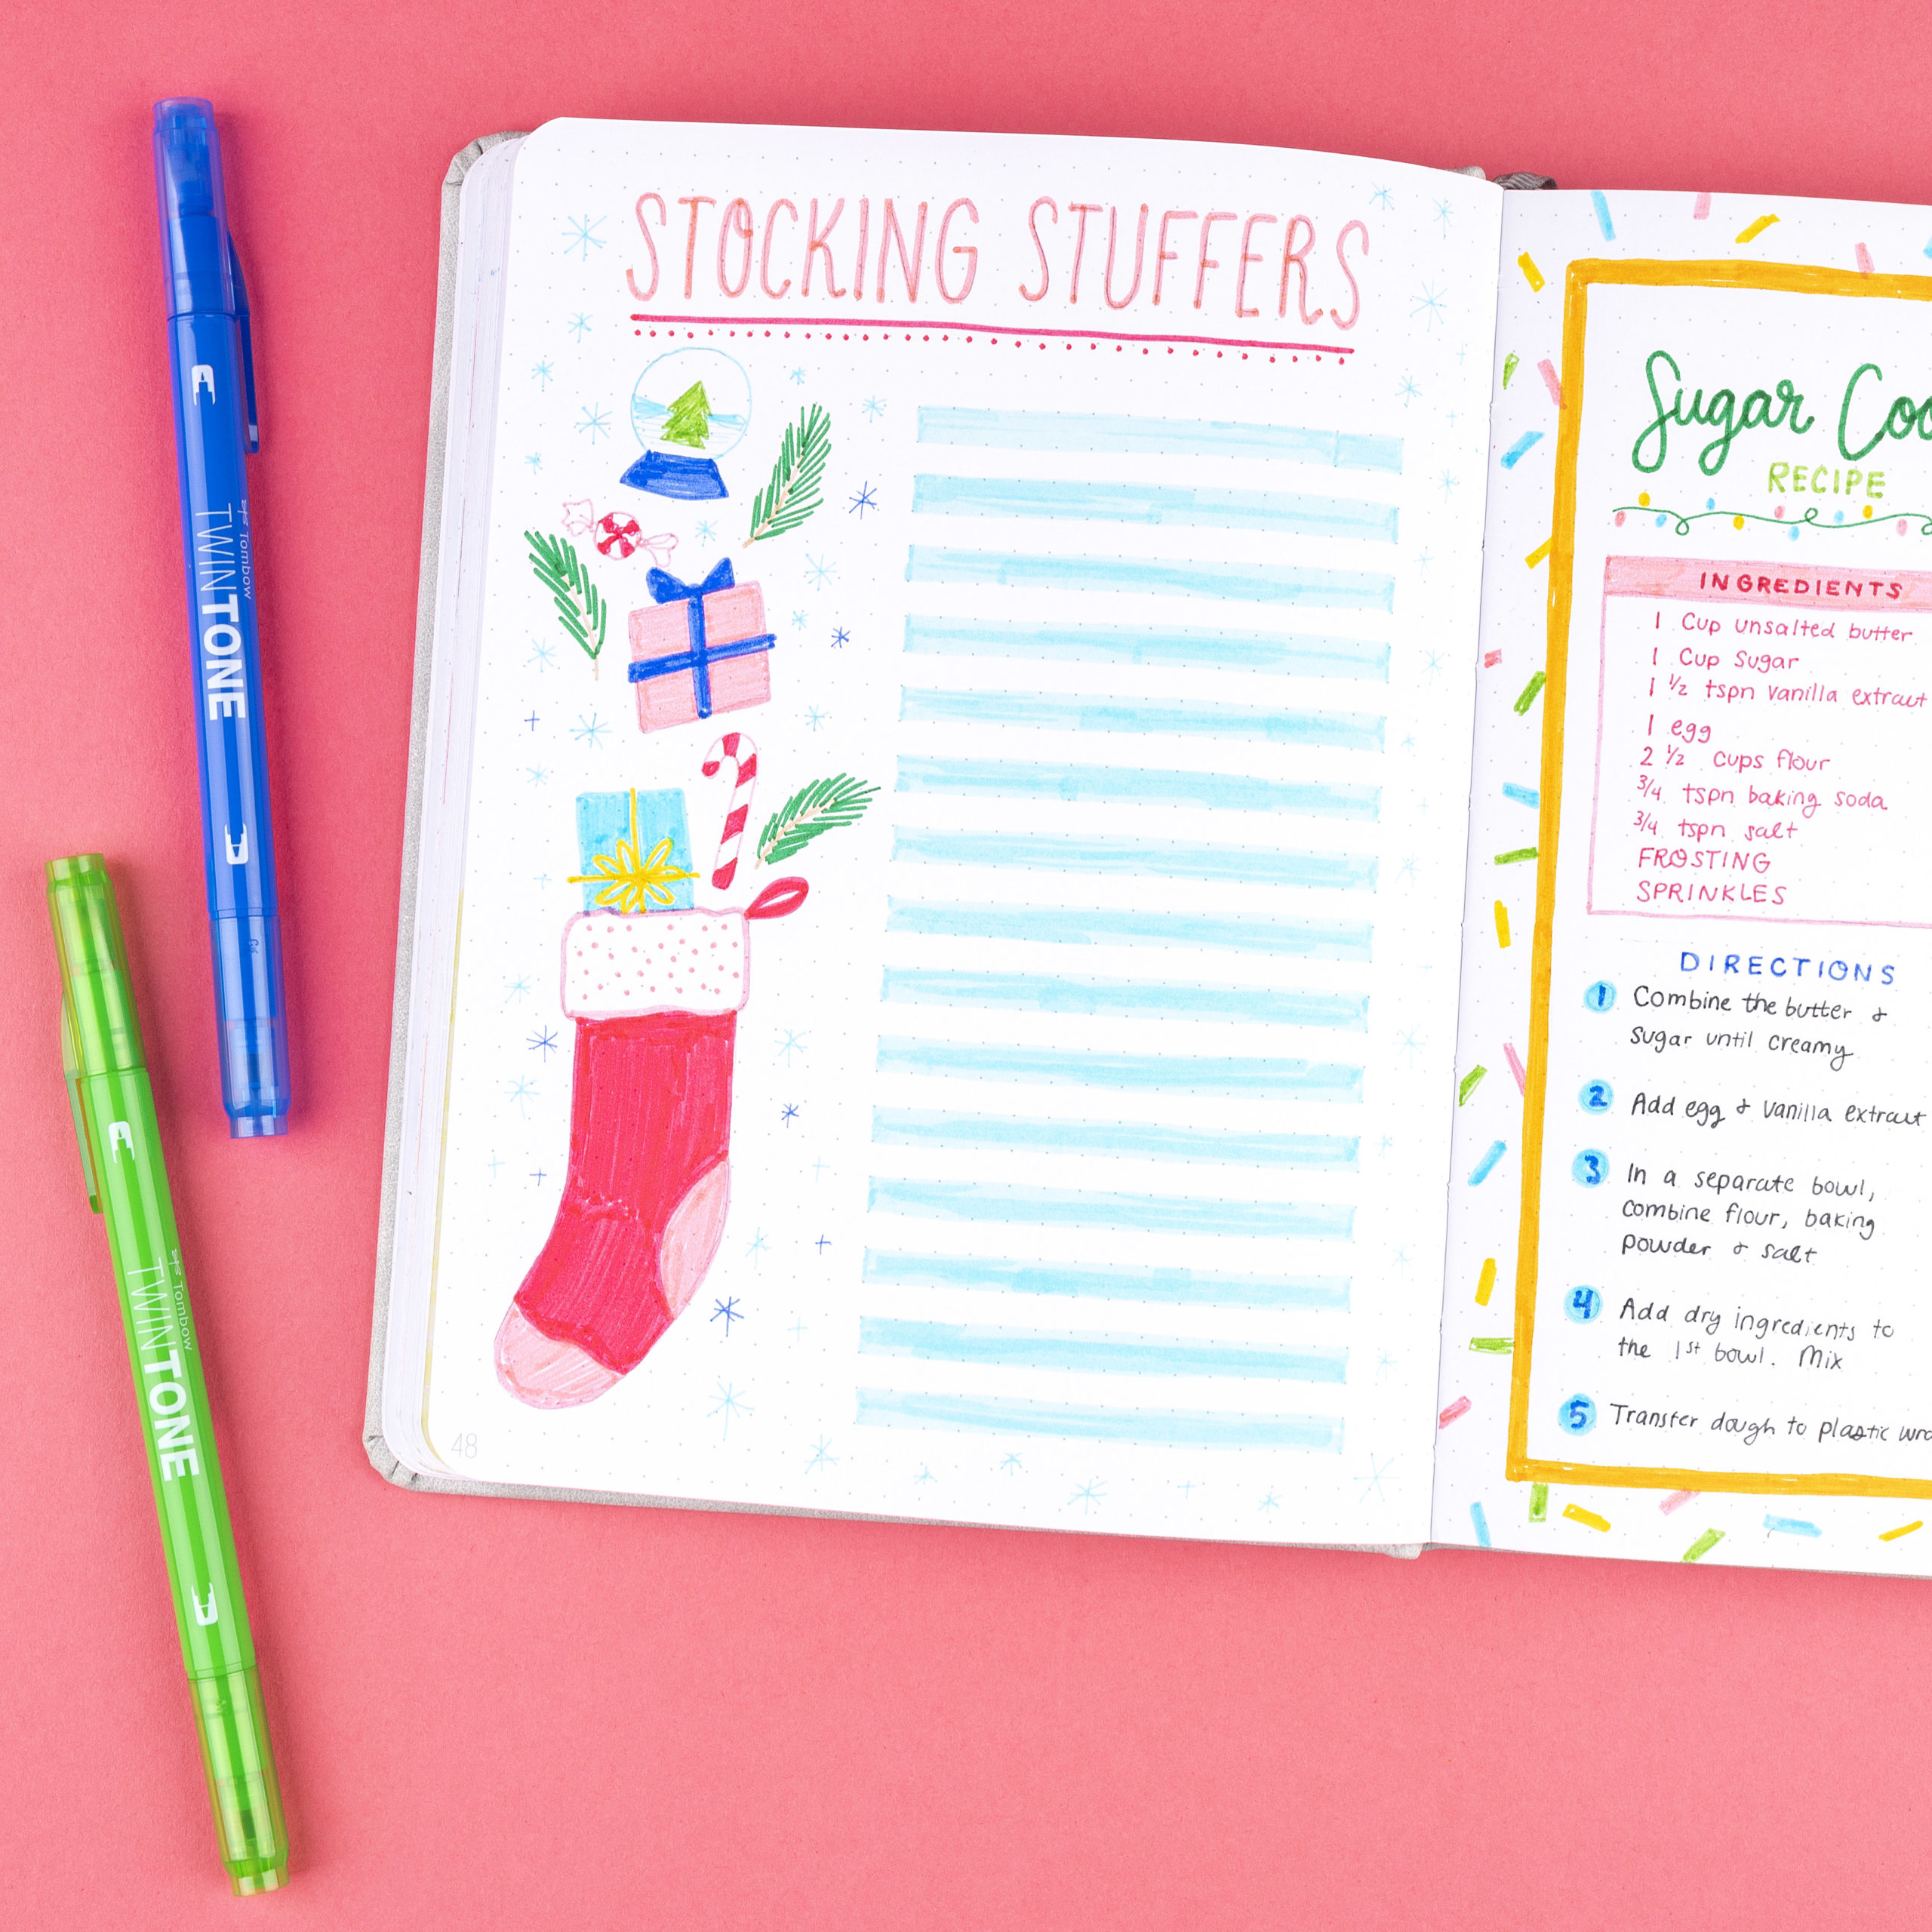 Tombow
TWINTONE
Tombow
TWINTONE
STOCKING STUFFERS
48
Sugar
RECIPE
INGREDIENTS
1 Cup unsalted butter
1 Cup Sugar
1 1/2 tspn vanilla extract
1 egg
2 1/2 cups flour
3/4 tspn baking soda
3/4 tspn salt
FROSTING
SPRINKLES
DIRECTIONS
1 Combine the butter &
sugar until creamy
2 Add egg & vanilla extract
3 In a separate bowl,
combine flour, baking
powder & salt
4 Add dry ingredients to
the 1st bowl. Mix
5 Transfer dough to plastic